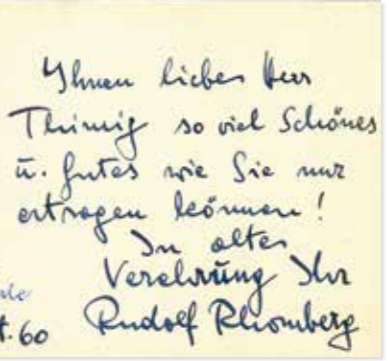 Ihnen lieber Herr
Thimig so viel Schönes
u. Gutes wie Sie nur
ertragen können!
In alter
Verehrung Ihr
Rudolf Rhomberg
t. 60